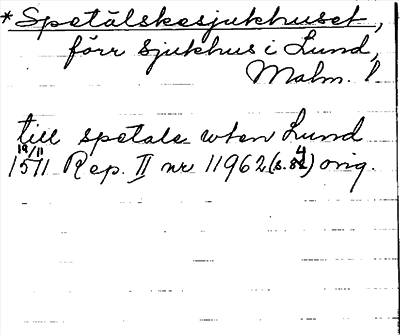 *Spetälskesjukhuset,
förr sjukhus i Lund,
Malm. l
till spetals uten Lund
19/11
1511 Rep. II nr 11962 (s. 84) orig.